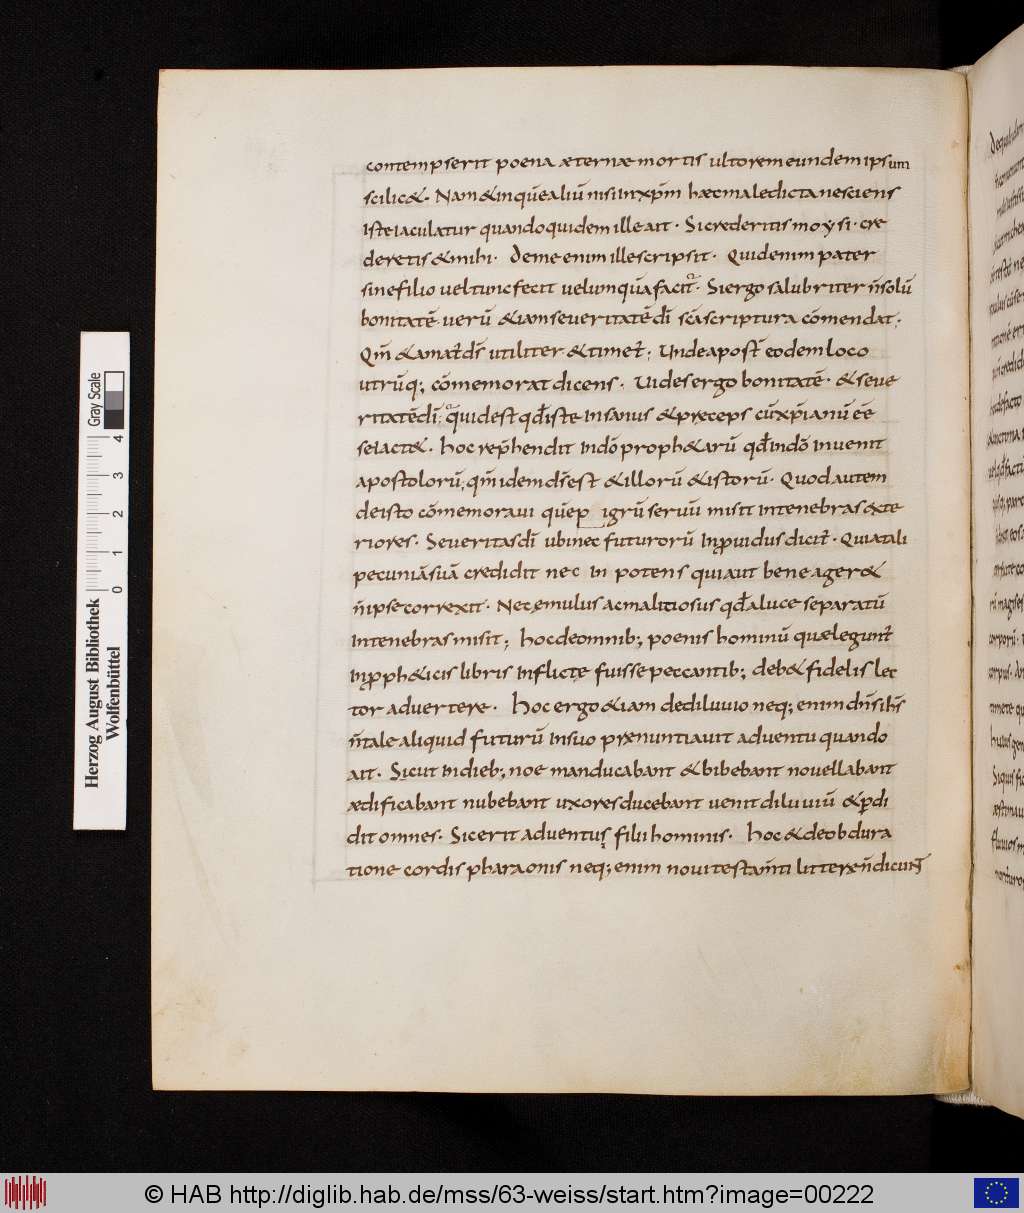 contempserit poena æternæ mortis ultorem eundem ipsum
scilic&. Nam &inquē aliū nisi inxp̄m hæc maledicta nesciens
iste iaculatur quandoquidem ille ait · Si crederitis moẏsi · cre
deretis & mihi · De me enim ille scripsit · Quid enim pater
sine filio uel tunc fecit uel umquā facit · Si ergo salubriter n̄ solū
bonitatē uerū & iam seueritatē dī sc̄a scriptura cōmendat;
Qm̄ & amat̄ ds̄ utiliter & timet̄; Unde apost̄ eodem loco
utrūq; cōmemorat dicens · Uides ergo bonitatē · & seue
ritatē dī; quid est qđ iste insanus & pręceps cū xp̄ianū eē
se iact& · hoc rep̄hendit indō proph&arū qđ indō inuenit
apostolorū; qm̄ idem ds̄ est & illorū & istorū · Quod autem
de isto cōmemoraui quē per igrū seruū misit in tenebras exte
riores · Seueritas dī ubi nec futurorū inprouidus dicit̄ · Quia tali
pecuniā suā credidit nec in potens qui aut bene ager&
n̄ ipse correxit · Nec emulus ac malitiosus qđ a luce separatū
in tenebras misit; hoc de omnib; poenis hominū quæ legunt̄
in proph&icis libris inflictę fuisse peccantib; deb& fidelis lec
tor aduertere · hoc ergo & iam de diluuio neq; enim dn̄s ih̄s
n̄ tale aliquid futurū in suo prænuntiauit aduentu quando
ait · Sicut in dieb; noe manducabant & bibebant nouellabant
ædificabant nubebant uxores ducebant uenit diluuiū & perdi
dit omnes · Sic erit aduentus filii hominis · hoc & de obdura
tione cordis pharaonis neq; enim noui testam̄ti litteræ n̄ dicunt
Herzog August Bibliothek
Wolfenbüttel
0 1 2 3 4
Gray Scale
© HAB http://diglib.hab.de/mss/63-weiss/start.htm?image=00222